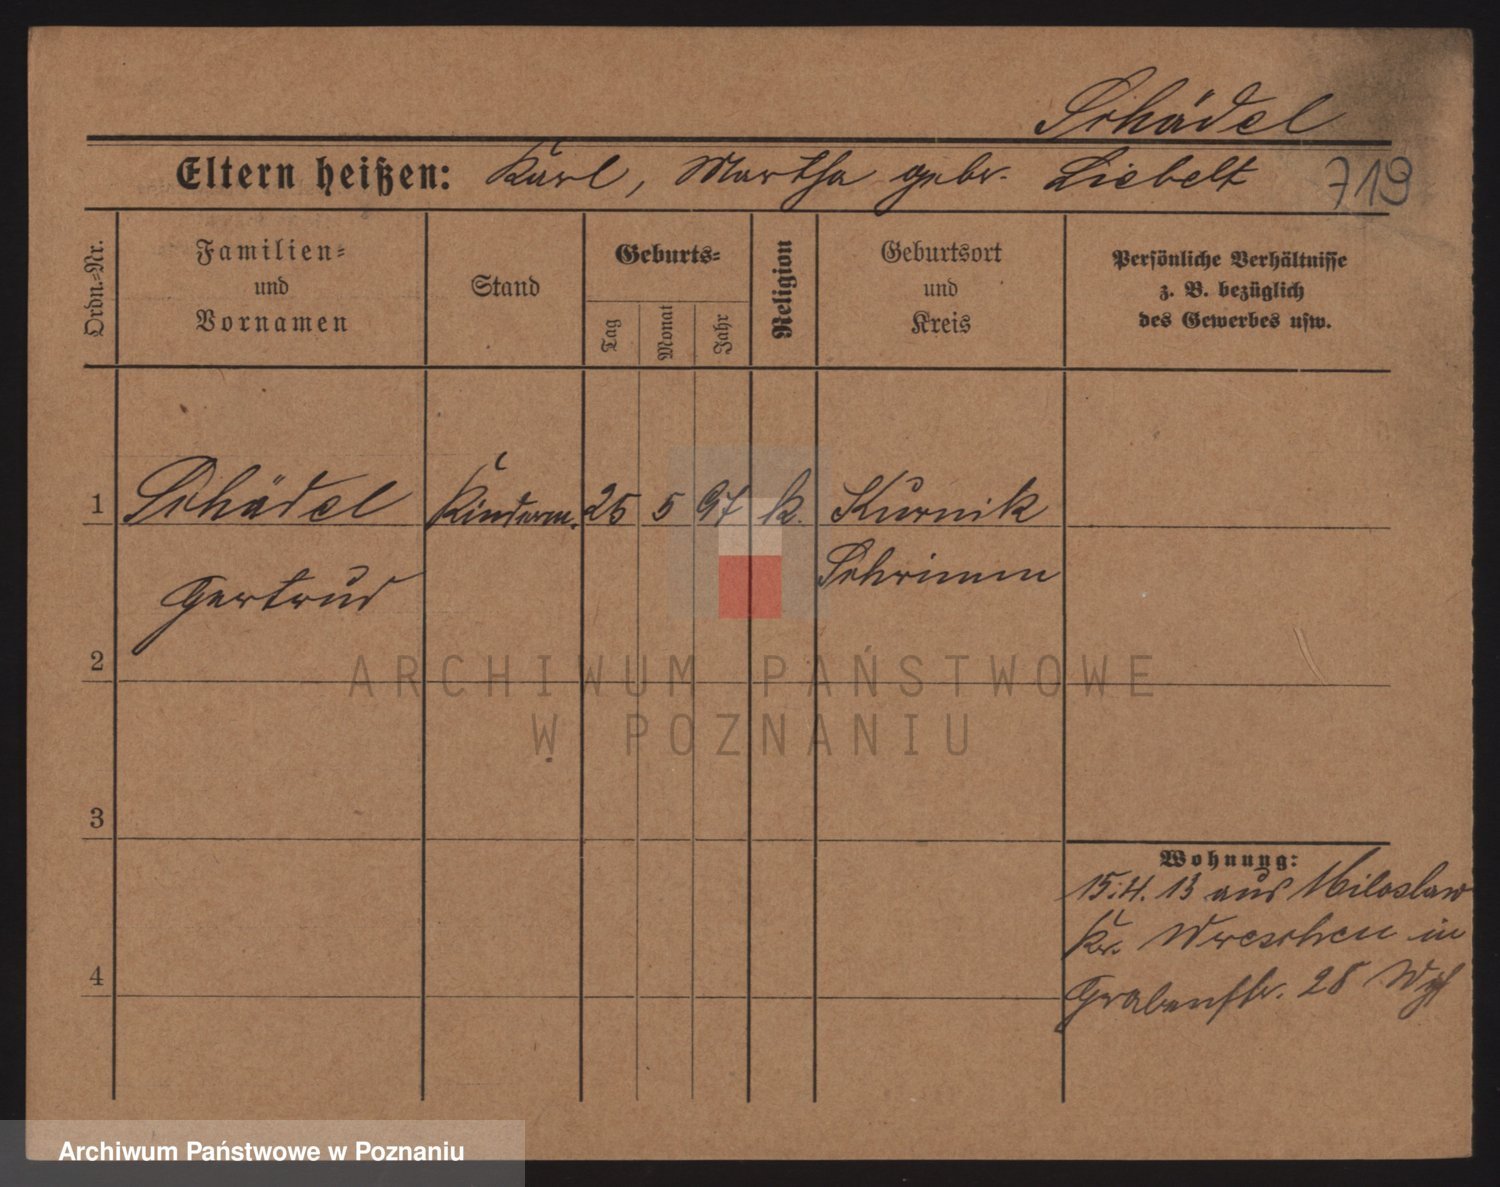 Schädel
Eltern heißen: Karl, Martha gebr. Liebelt 719
Ordn.-Nr.
Familien-
und
Vornamen
Stand
Geburts-
Tag
Monat
Jahr
Religion
Geburtsort
und
Kreis
Persönliche Verhältnisse
z. B. bezüglich
des Gewerbes usw.
1 Schädel Kinderm. 25 5 97 k. Kurnik
Schrimm
Gertrud
2
ARCHIWUM PAŃSTWOWE
W POZNANIU
3
Wohnung:
15.4.13 aus Miloslaw
Kr. Wreschen in
4
Grabenstr. 28
Archiwum Państwowe w Poznaniu